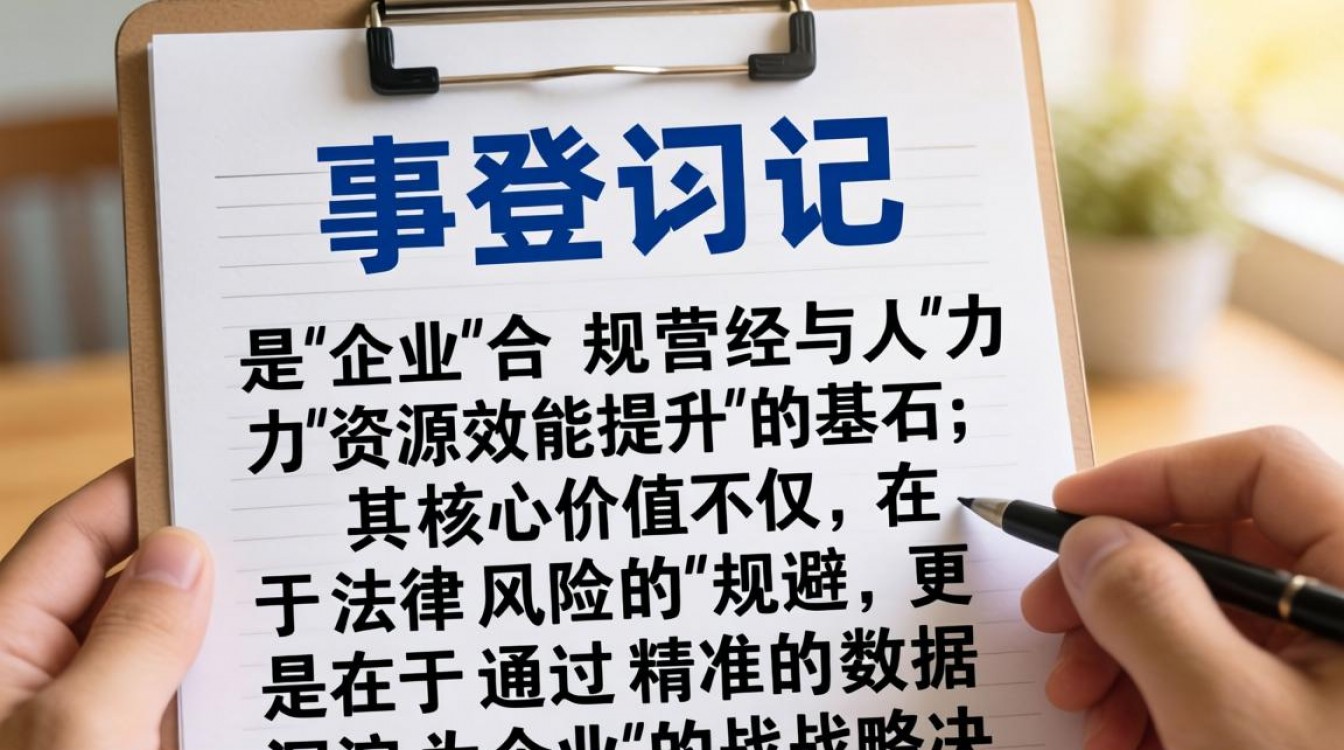 事登讱记
是"企业"合 规营经与人"力
力"资源效能提升"的基石；
其核心价值不仅，在
于法律风险的"规避，更
是在于通过精准的数据
为企业"的战战略决